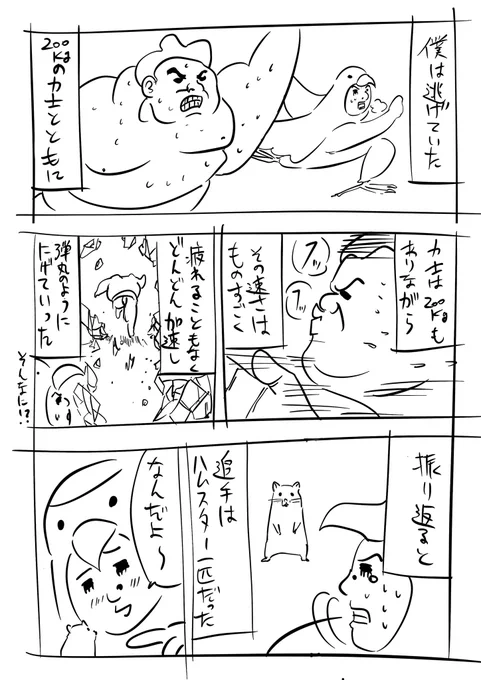 僕は逃げていた
200
Kgの力士とともに
力士は200Kgも
ありながら
フッ
フッ
その速さは
ものすごく
疲れることもなく
どんどん加速し
弾丸のように
にげていった
そんなに!?
振り返ると
追手は
ハムスター一匹だった
なんだよ〜